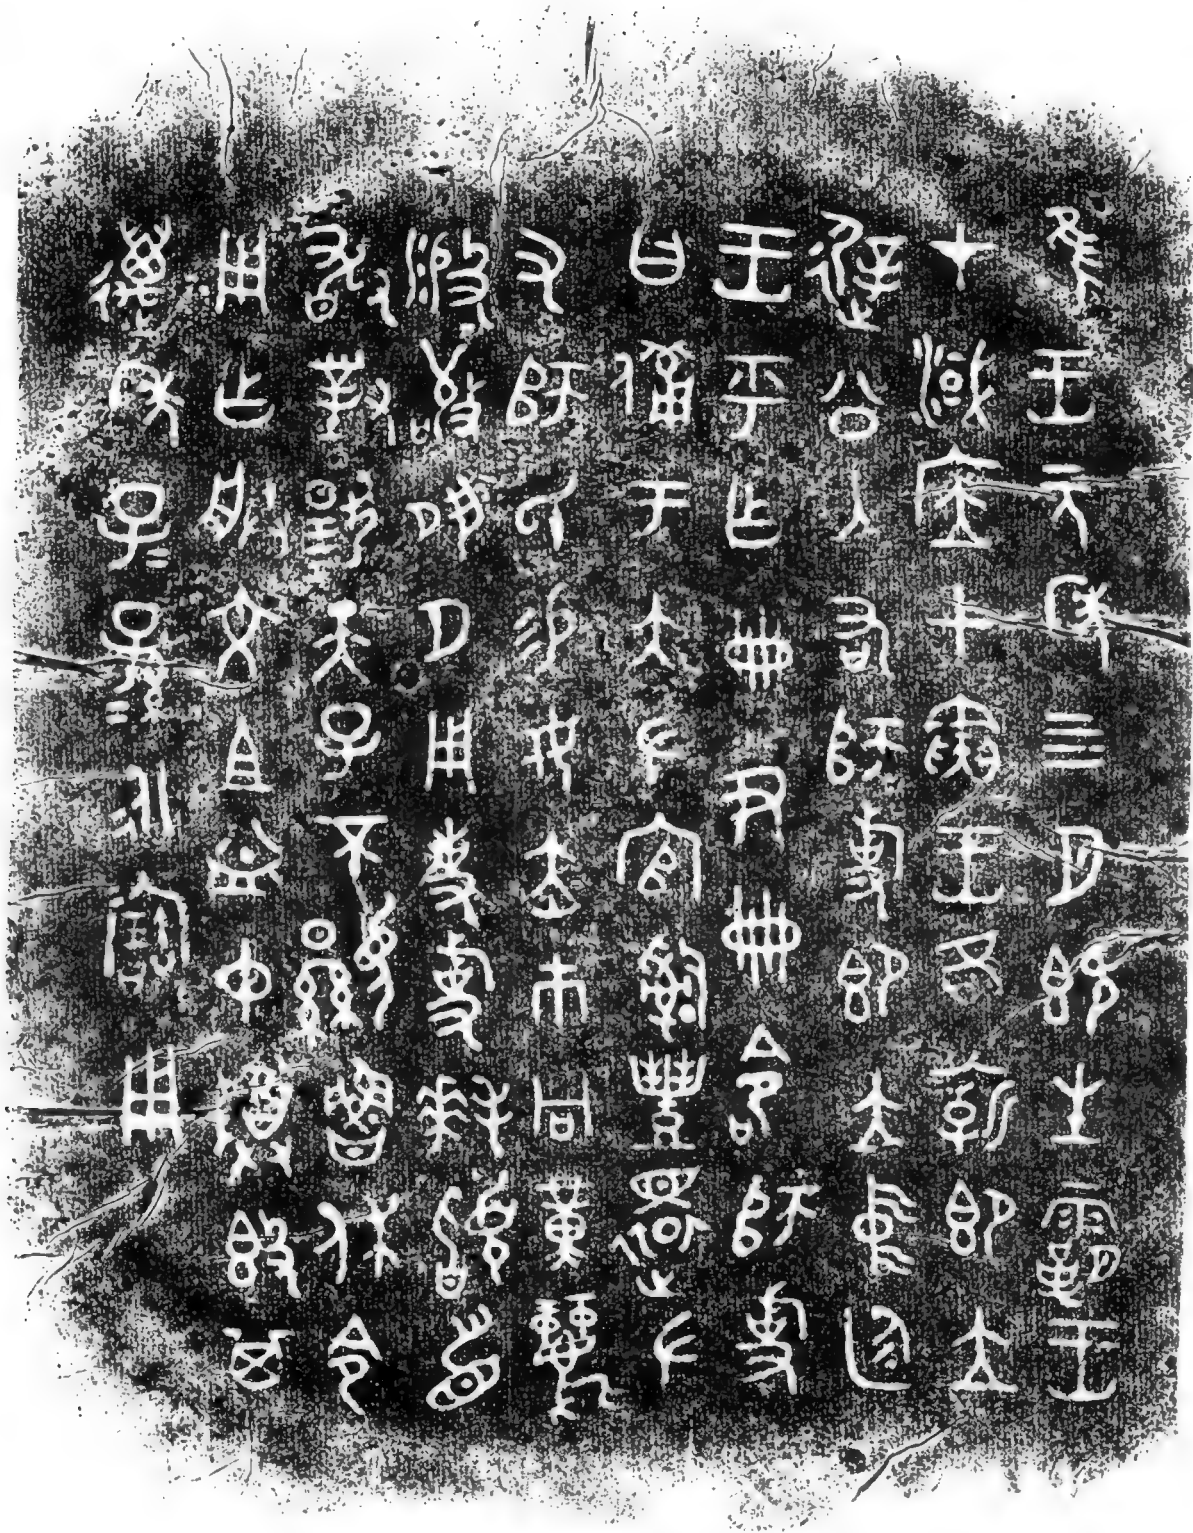 隹王元年四月既生霸王
才淢应甲寅王各廟即立
遟公入右師旋即立中廷
王乎乍冊尹冊命師旋
曰備于大左官𤔲豐還左
又師氏易女赤巿冋黃麗
般敬夙夕用事旋拜𩒨首
敢對揚天子不顯魯休令
用乍朕文且益中𬯚𣪘其
萬年子=孫=永寶用